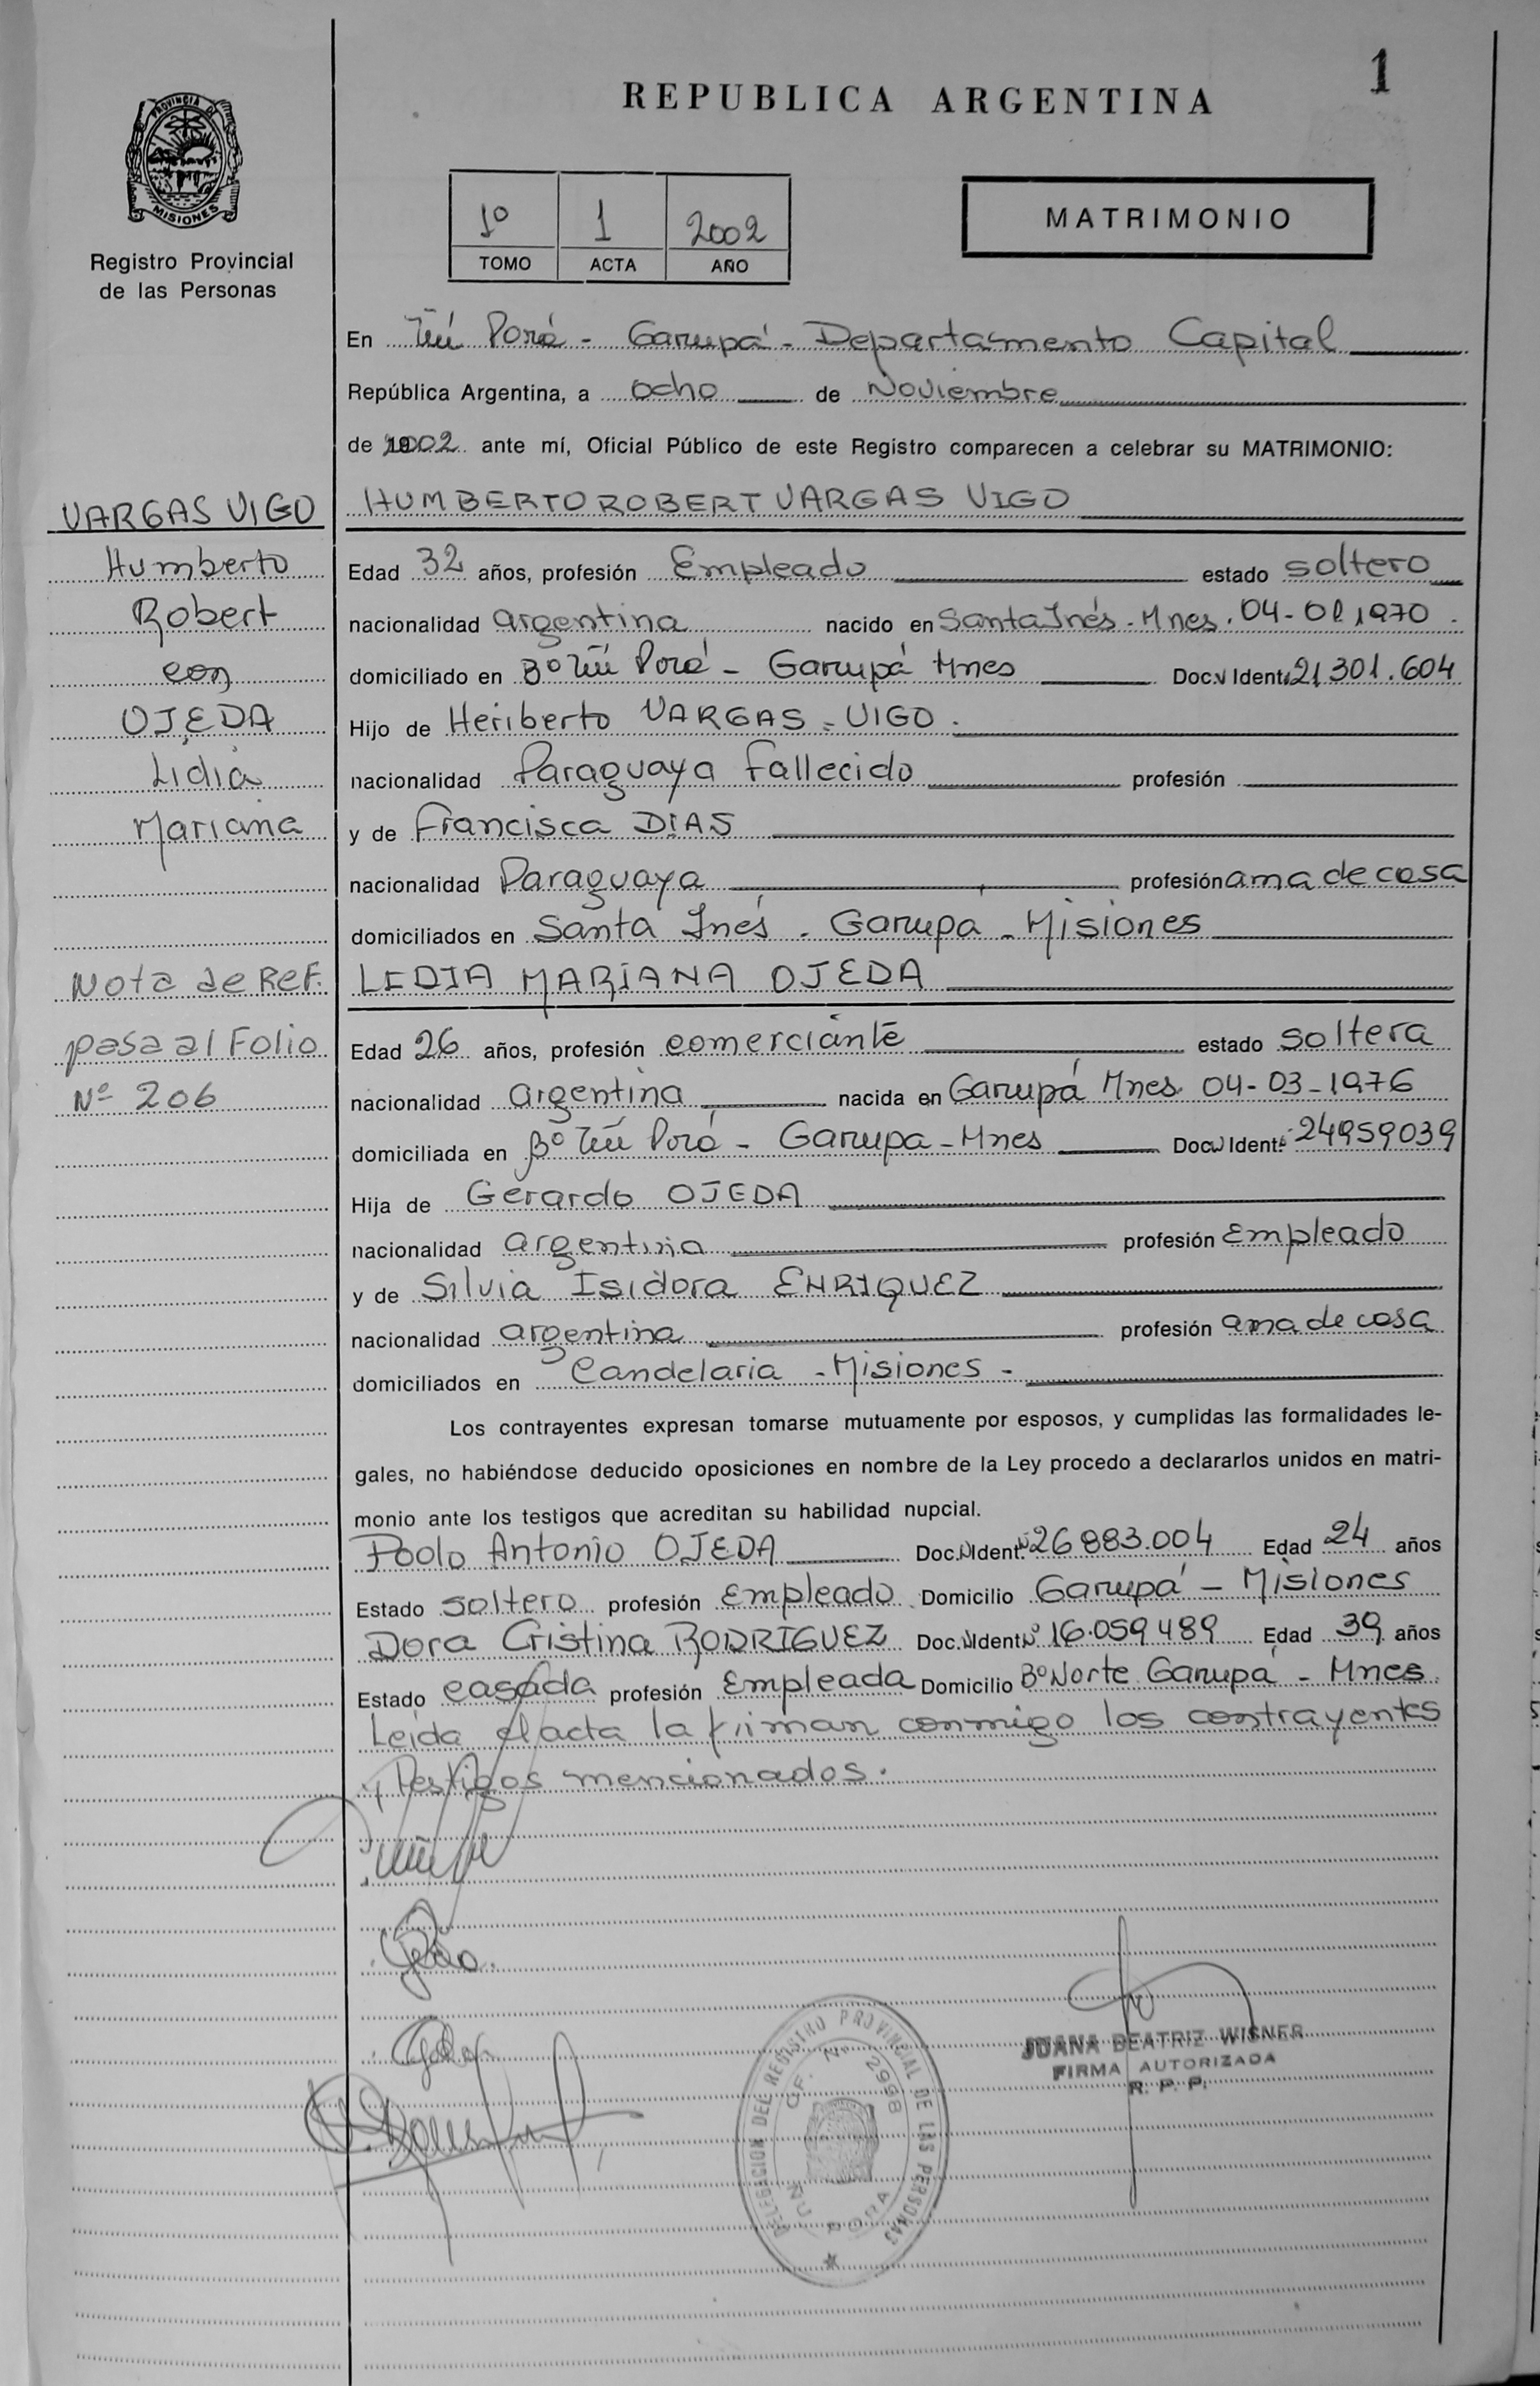 1
REPUBLICA ARGENTINA
PROVINCIA D
MISIONES
Registro Provincial
de las Personas
1º 1 2002
TOMO ACTA AÑO
MATRIMONIO
En Ñú Porá - Garupá - Departamento Capital
República Argentina, a ocho de Noviembre
de 2002 ante mí, Oficial Público de este Registro comparecen a celebrar su MATRIMONIO:
VARGAS VIGO
Humberto
Robert
con
OJEDA
Lidia
Mariana
Nota de Ref.
pasa al Folio
Nº 206
HUMBERTO ROBERT VARGAS VIGO
Edad 32 años, profesión Empleado estado soltero
nacionalidad argentina nacido en Santa Inés - Mnes. 04-01 1970
domiciliado en Bº Ñú Porá - Garupá Mnes Doc. Ident. 21 301.604
Hijo de Heriberto VARGAS - VIGO.
nacionalidad Paraguaya Fallecido profesión
y de Francisca DIAS
nacionalidad Paraguaya profesión ama de casa
domiciliados en Santa Inés - Garupá - Misiones
LIDIA MARIANA OJEDA
Edad 26 años, profesión comerciante estado soltera
nacionalidad argentina nacida en Garupá Mnes 04-03-1976
domiciliada en Bº Ñú Porá - Garupa - Mnes Doc. Ident. 24959039
Hija de Gerardo OJEDA
nacionalidad argentina profesión Empleado
y de Silvia Isidora ENRIQUEZ
nacionalidad argentina profesión ama de casa
domiciliados en Candelaria - Misiones -
Los contrayentes expresan tomarse mutuamente por esposos, y cumplidas las formalidades le-
gales, no habiéndose deducido oposiciones en nombre de la Ley procedo a declararlos unidos en matri-
monio ante los testigos que acreditan su habilidad nupcial.
Antonio OJEDA Doc. N Ident. Nº 26 883.004 Edad 24 años
Estado soltero profesión Empleado Domicilio Garupá - Misiones
Dora Cristina RODRIGUEZ Doc. N Ident. Nº 16.059 489 Edad 39 años
Estado casada profesión Empleada Domicilio Bº Norte Garupá - Mnes.
Leída el acta la firman conmigo los contrayentes
y testigos mencionados.
JUANA BEATRIZ WISNER
FIRMA AUTORIZADA
R. P. P.
DELEGACION DEL REGISTRO PROVINCIAL DE LAS PERSONAS
OF. Nº 2998
ÑU PORA